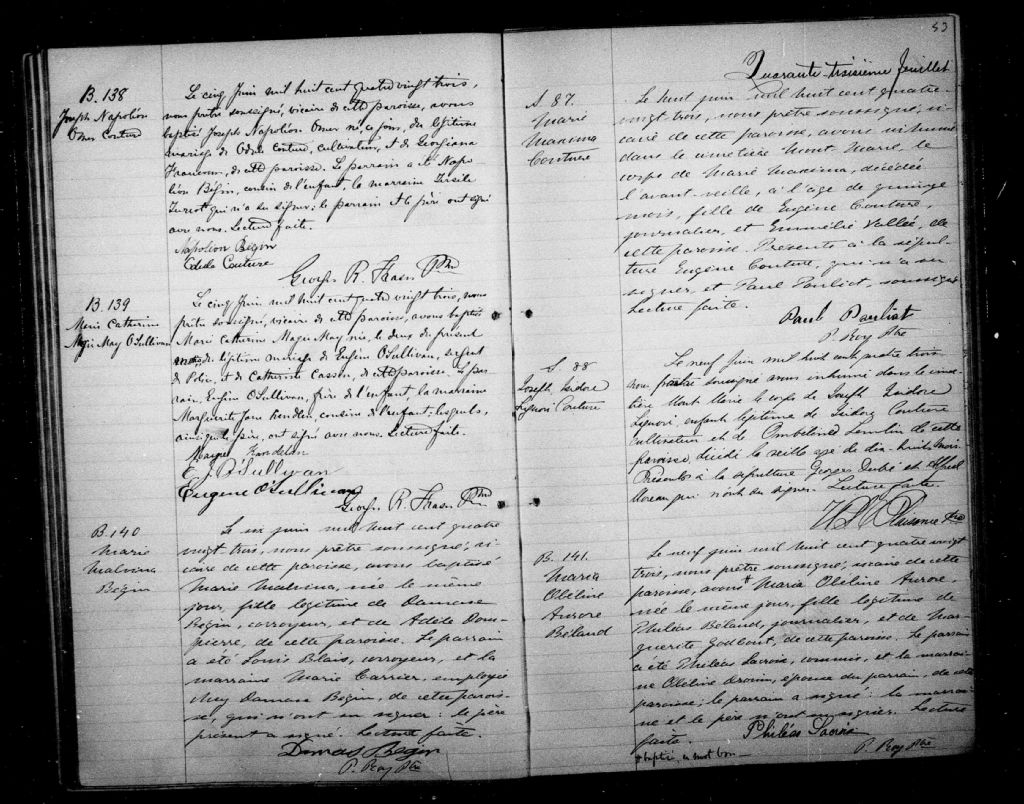 B. 138
Joseph Napoléon
Omer Couture
Le cinq Juin mil huit cent quatre vingt trois,
nous prêtre soussigné, vicaire de cette paroisse, avons
baptisé Joseph Napoléon Omer né, ce jour, du légitime
mariage de Odule Couture, cultivateur, et de Georgiana
de cette paroisse. Le parrain a été Napo-
léon Bégin, cousin de l'enfant, la marraine
Turcot qui n'a su signer; le parrain et le père ont signé
avec nous. Lecture faite.
Napoleon Begin
Odule Couture
George R. Fraser Ptre
B. 139
Marie Catherine
Magie May O'Sullivan
Le cinq Juin mil huit cent quatre vingt trois, nous
prêtre soussigné, vicaire de cette paroisse, avons baptisé
Marie Catherine Magie May née le deux du présent
mois du légitime mariage de Eugène O'Sullivan, sergent
de Police, et de Catherine Cassen, de cette paroisse. Le par-
rain, Eugène O'Sullivan, frère de l'enfant, la marraine
Marguerite Jane cousine de l'enfant, lesquels,
ainsi que le père, ont signé avec nous. Lecture faite.
Maggie
E. J. O'Sullivan
Eugene O'Sullivan
George R. Fraser Ptre
B. 140
Marie
Malvina
Begin
Le six juin mil huit cent quatre
vingt trois, nous prêtre soussigné, vi-
caire de cette paroisse, avons baptisé
Marie Malvina, née le même
jour, fille légitime de Damase
Begin, corroyeur, et de Adèle Dom-
pierre, de cette paroisse. Le parrain
a été Louis Blais, corroyeur, et la
marraine Marie Carrier, employée
chez Damase Begin, de cette parois-
se, qui n'ont su signer: le père
présent a signé. Lecture faite.
Damas Begin
P. Roy Ptre
53
Quarante-troisième feuillet
S. 87.
Marie
Maxima
Couture
Le huit juin mil huit cent quatre-
vingt trois, nous prêtre soussigné, vi-
caire de cette paroisse, avons inhumé
dans le cimetière Mont-Marie, le
corps de Marie Maxima, décédée
l'avant-veille, à l'âge de quinze
mois, fille de Eugène Couture,
journalier, et Emmélie Vallée, de
cette paroisse. Présents à la sépul-
ture Eugène Couture, qui n'a su
signer, et Paul Pouliot, soussigné
Lecture faite.
Paul Pauliot
P. Roy Ptre
S. 88
Joseph Isidore
Liguori Couture
Le neuf Juin mil huit cent quatre trois
nous prêtre soussigné avons inhumé dans le cime-
tière Mont Marie le corps de Joseph Isidore
Liguori, enfant légitime de Isidore Couture
Cultivateur et de Ombéline Lemelin de cette
paroisse, décédé la veille agé de dix-huit mois
Présents à la sépulture Georges Dubé et Alfred
Moreau qui n'ont su signer. Lecture faite
Plaisance Ptre
B. 141.
Maria
Obéline
Aurore
Béland
Le neuf juin mil huit cent quatre vingt
trois, nous prêtre soussigné, vicaire de cette
paroisse, avons + Maria Obéline Aurore,
née le même jour, fille légitime de
Philéas Béland, journalier, et de Mar-
guerite Godbout, de cette paroisse. Le parrain
a été Philéas Lacroix, commis, et la marrai-
ne Obéline Drouin, épouse du parrain, de cette
paroisse; le parrain a signé: la marrai-
ne et le père n'ont su signer. Lecture
faite.
Philéas Lacroix
+ baptisé, ce mot bon
P. Roy Ptre